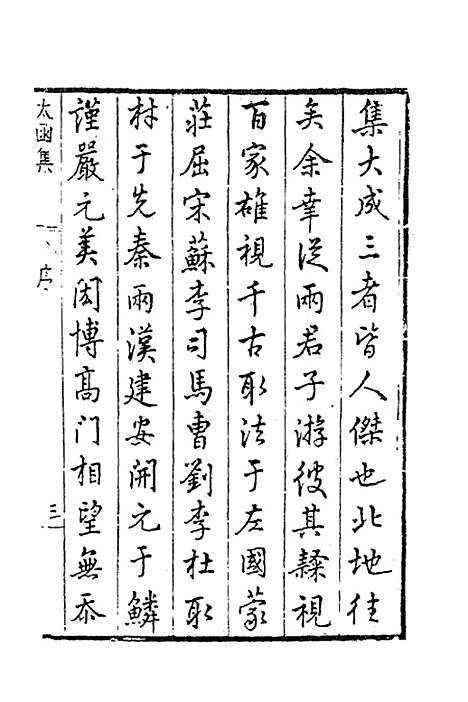 集大成三者皆人傑也北地往
矣余幸從兩君子游彼其隸視
百家雄視千古取法于左國蒙
莊屈宋蘇李司馬曹劉李杜取
材于先秦兩漢建安開元于鱗
謹嚴元美閎博高門相望無忝
太函集 序 三